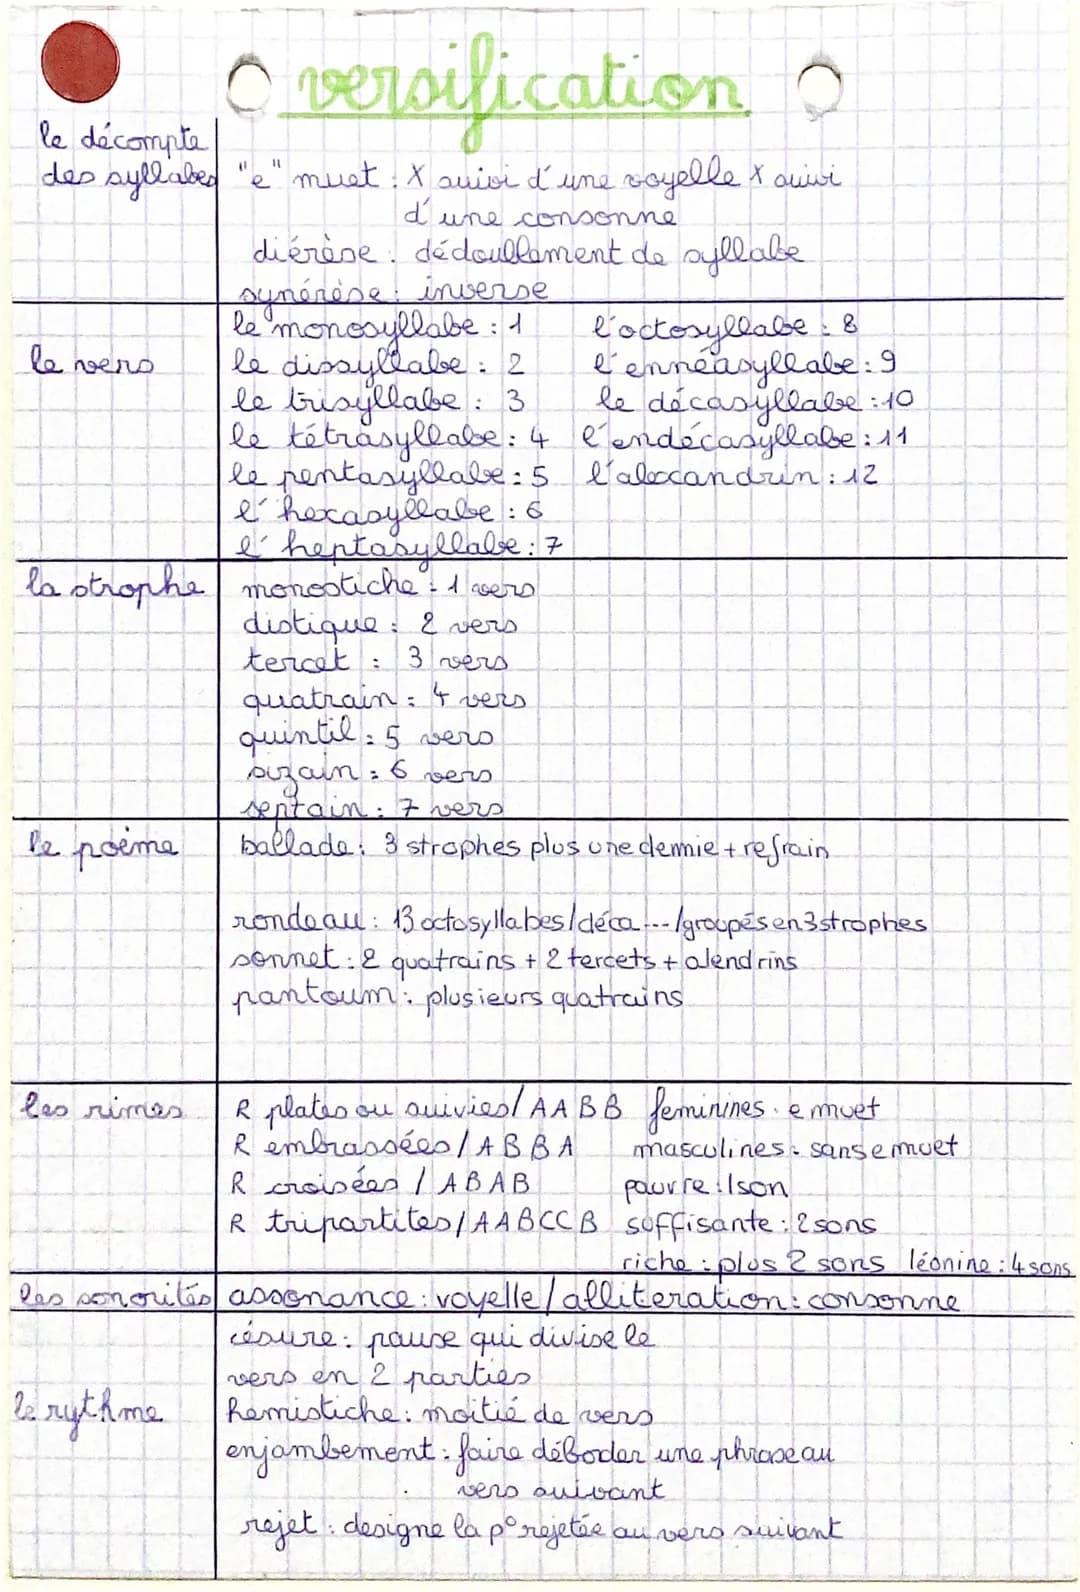 versification
le décompte
des syllabes "e" muet : X suivi d'une voyelle X suivi
d'une consonne
diérèse : dédoublement de syllabe
synérèse : inverse
le monosyllabe : 1 l'octosyllabe : 8
le vers le dissyllabe : 2 l'ennéasyllabe : 9
le trisyllabe : 3 le décasyllabe : 10
le tétrasyllabe : 4 l'endécasyllabe : 11
le pentasyllabe : 5 l'alexandrin : 12
l'hexasyllabe : 6
l'heptasyllabe : 7
la strophe monostiche : 1 vers
distique : 2 vers
tercet : 3 vers
quatrain : 4 vers
quintil : 5 vers
sizain : 6 vers
septain : 7 vers
le poème ballade : 3 strophes plus une demie + refrain
rondeau : 13 octosyllabes/déca.../groupés en 3 strophes
sonnet : 2 quatrains + 2 tercets + alendrins
pantoum : plusieurs quatrains
les rimes R plates ou suivies/AABB feminines. e muet
R embrassées/ABBA masculines : sans e muet
R croisées/ABAB pauvre : 1 son
R tripartites/AABCCB suffisante : 2 sons
riche : plus 2 sons léonine : 4 sons
les sonorités assonance : voyelle/alliteration : consonne
césure : pause qui divise le
vers en 2 parties
le rythme hemistiche : moitié de vers
enjambement : faire déboder une phrase au
vers suivant
rejet : designe la p° rejetée au vers suivant